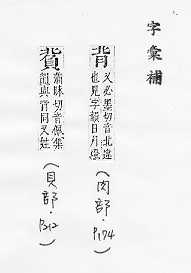 字彙補
背
又必墨切音北違
也見字韻日月傻
(肉部·P174
背
蒲昧切音佩集
韻與背同又姓
(貝部·P212